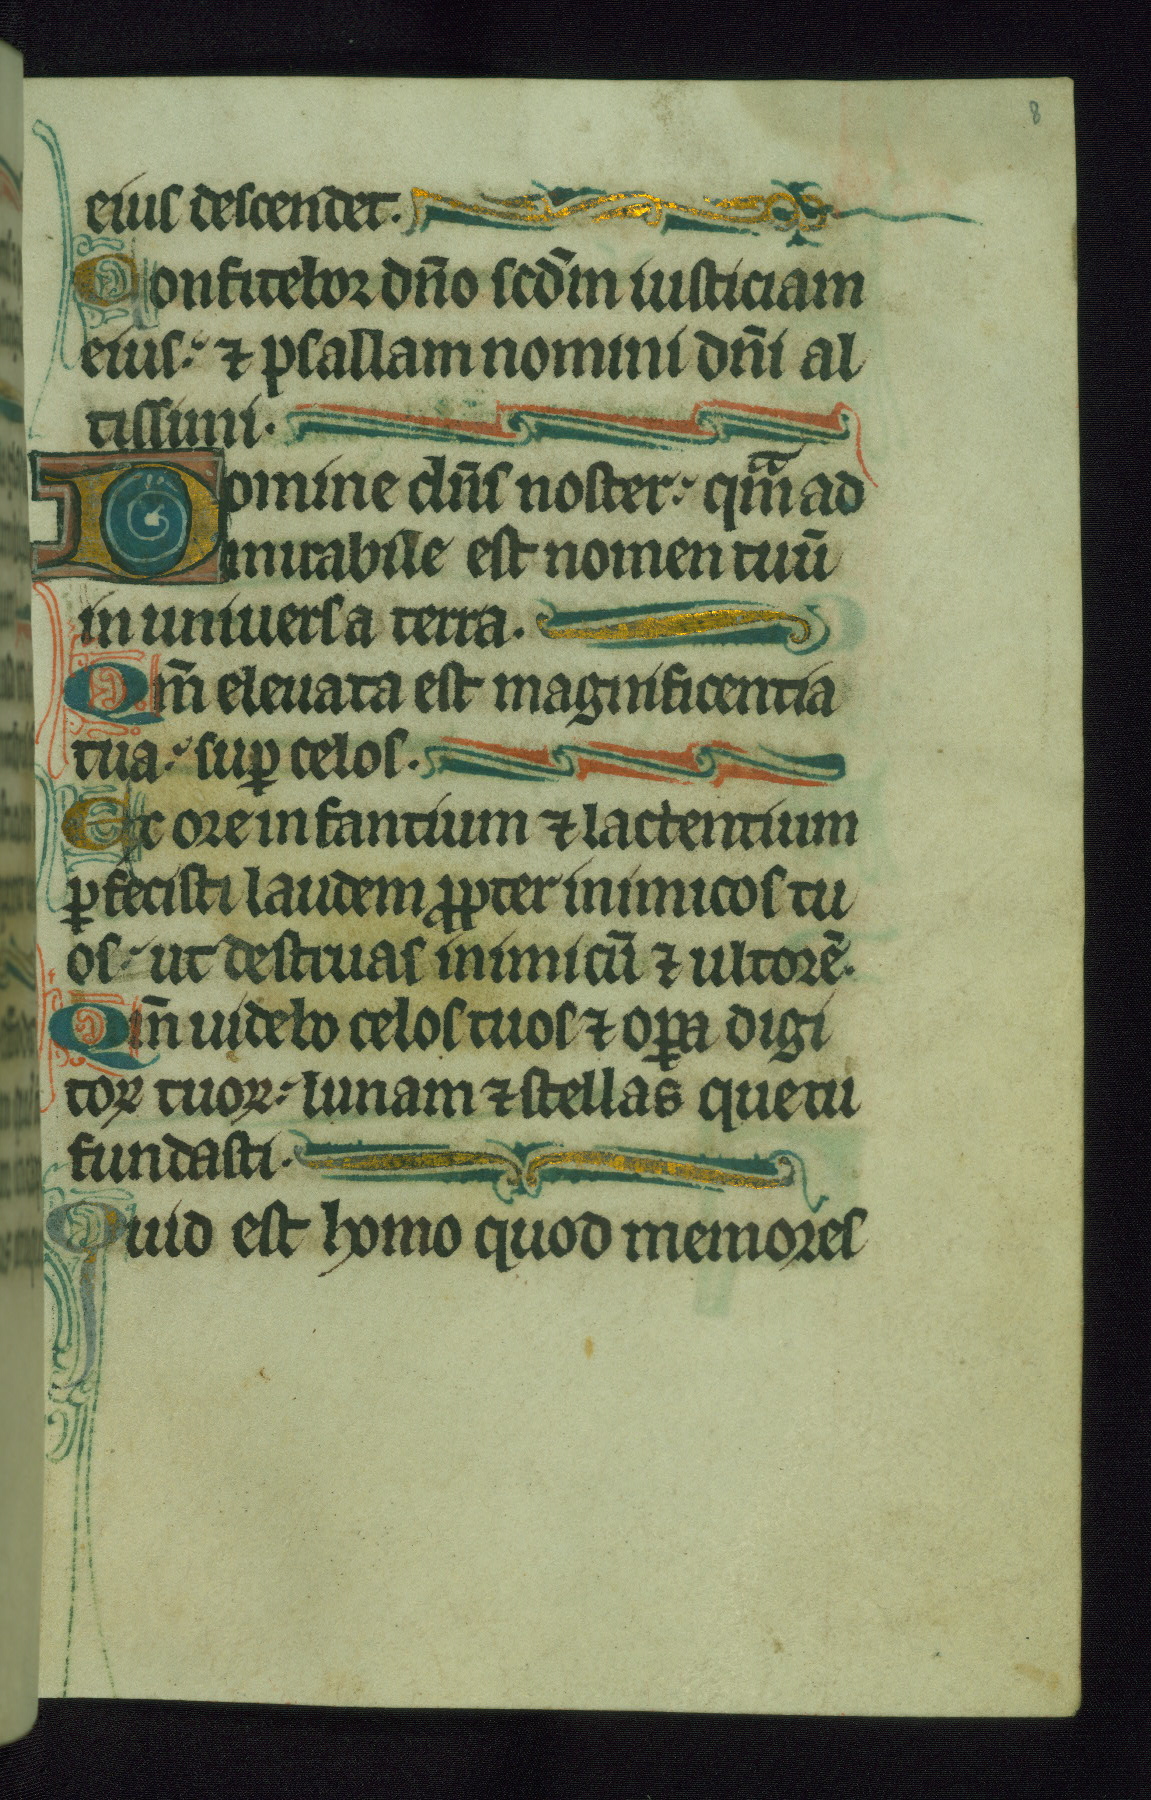 8
eius descendet.
Confitebor dn̄o scd̄m iusticiam
eius: ⁊ psallam nomini dn̄i al
tissimi.
Domine dn̄s noster: qm̄ ad
mirabile est nomen tuū
in uniuersa terra.
Qm̄ eleuata est magnificentia
tua: suꝑ celos.
Ex ore infantium ⁊ lactentium
ꝑfecisti laudem ꝓpter inimicos tu
os: ut destruas inimicū ⁊ ultorē.
Qm̄ uidebo celos tuos ⁊ oꝑa digi
toꝝ tuoꝝ: lunam ⁊ stellas que tu
fundasti.
Quid est homo quod memor es